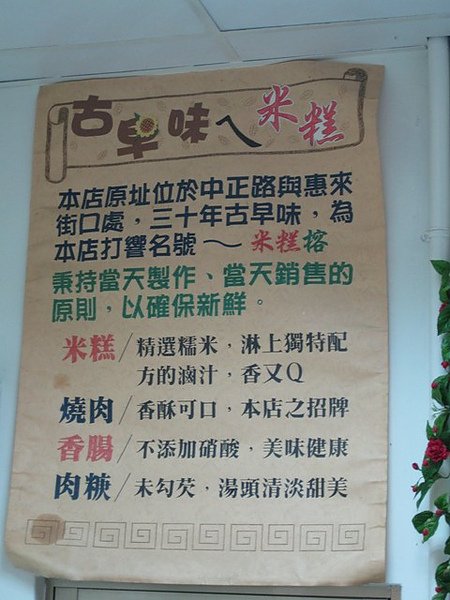 古早味ㄟ米糕
本店原址位於中正路與惠來
街口處，三十年古早味，為
本店打響名號～米糕榕
秉持當天製作、當天銷售的
原則，以確保新鮮。
米糕/精選糯米，淋上獨特配
方的滷汁，香又Q
燒肉/香酥可口，本店之招牌
香腸/不添加硝酸，美味健康
肉粳/未勾芡，湯頭清淡甜美